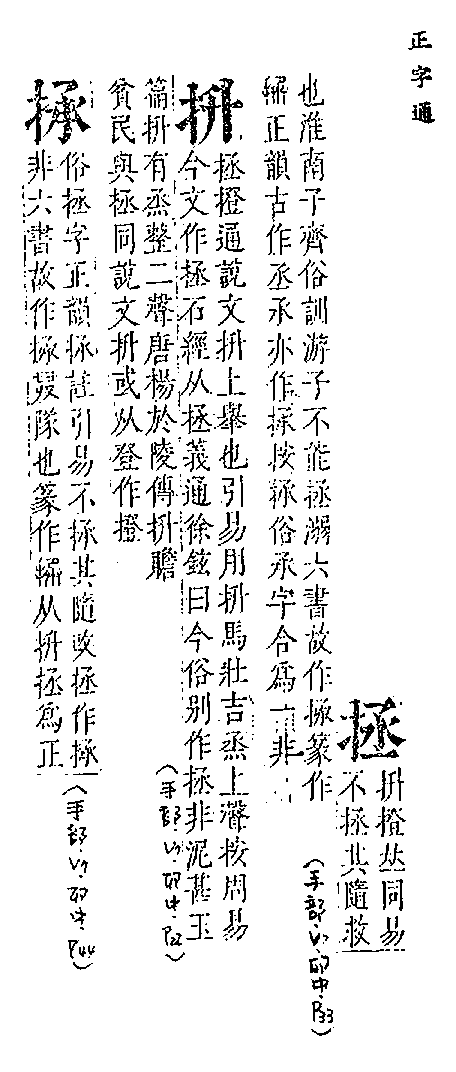 正字通
拯 抍撜𠀤同易
不拯其隨救
也淮南子齊俗訓游子不能拯溺六書故作㧸篆作
正韻古作丞承亦作㧸按㧸俗承字合為一非
(手部,卯中,P33)
抍 拯撜通說文抍上舉也引易用抍馬壯吉烝上聲按周易
今文作拯石經从拯義通徐鉉曰今俗別作拯非泥甚玉
篇抍有烝整二聲唐楊於陵傳抍贍
貧民與拯同說文抍或从登作撜
(手部,卯中,P22)
㧸 俗拯字正韻㧸註引易不拯其隨改拯作㧸
非六書故作㧸 隊也篆作 从抍拯為正
(手部,卯中,P44)